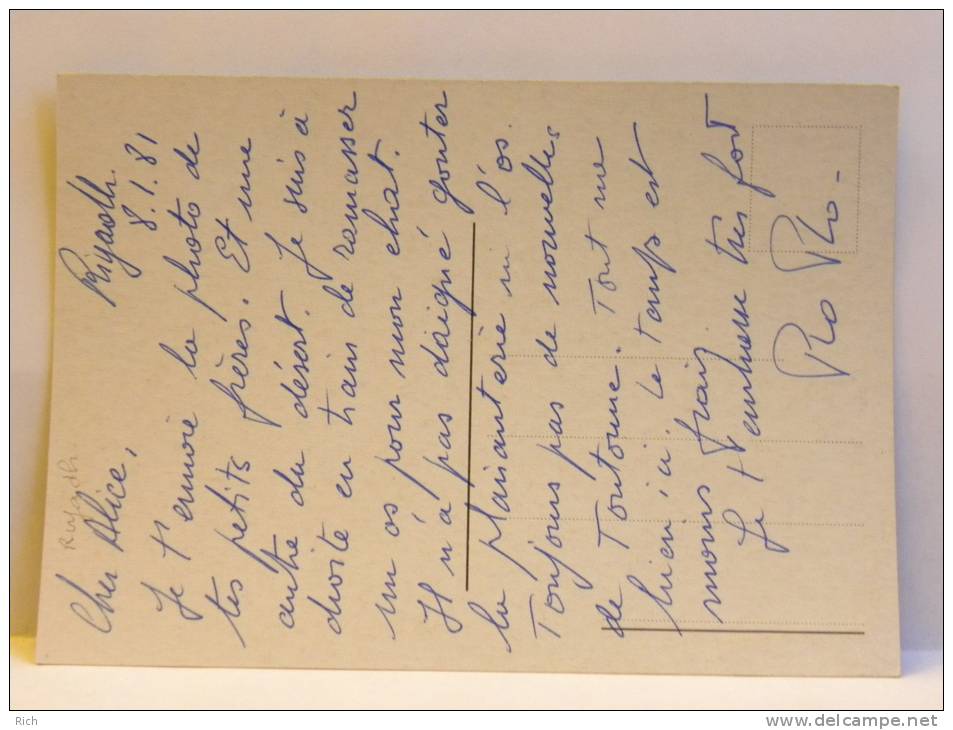 Riyadh.
8.1.81
Riyadh
Cher Alice,
Je t'envoie la photo de
tes petits frères. Et une
autre du désert. Je suis à
droite en train de ramasser
un os pour mon chat.
Il n'a pas daigné gouter
la plaisanterie ni l'os.
Toujours pas de nouvelles
de Toutoune. Tout va
bien ici. Le temps est
moins frais.
Je t'embrasse très fort
Ro Ro.-
Rich
http://www.delcampe.net